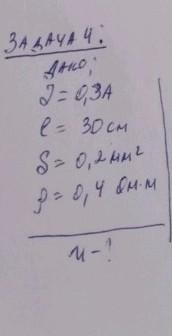 ЗАДАЧА 4:
ДАНО;
J = 0,3А
l = 30 см
S = 0,2 мм²
ρ = 0,4 Ом·м
u - ?